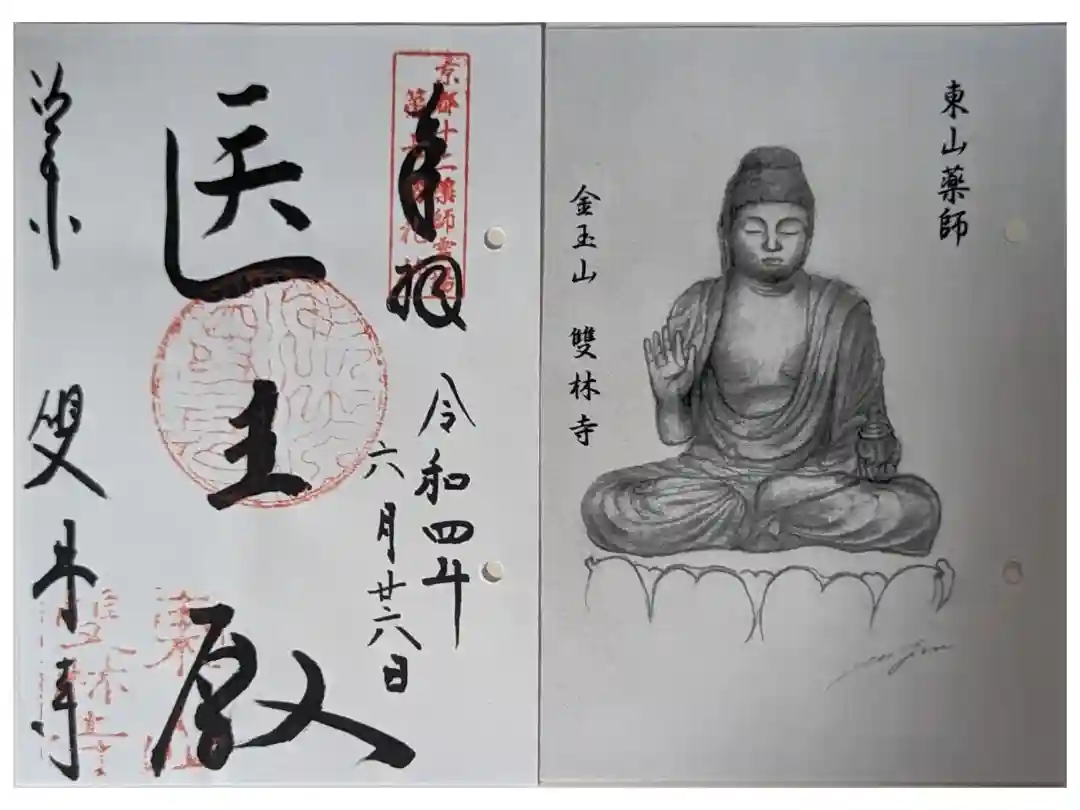 京都十二薬師霊場
奉拝
令和四年
六月廿六日
医王殿
雙林寺
東山
雙林寺
東山薬師
金玉山 雙林寺